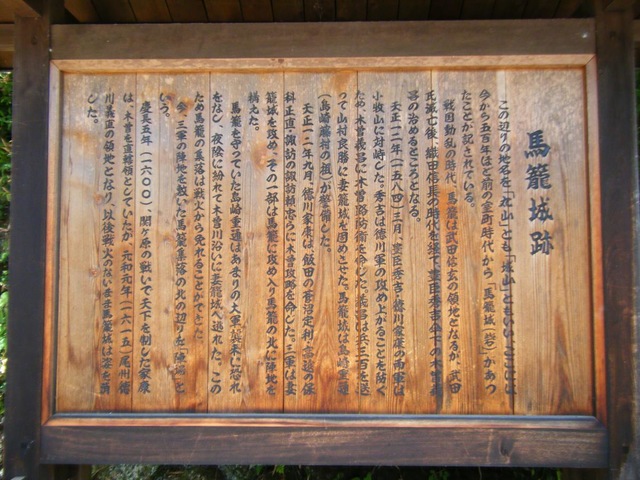 馬籠城跡
この辺りの地名を「丸山」とも「城山」ともいい、ここには
今から五百年ほど前の室町時代から「馬籠城(砦)」があっ
たことが記されている。
戦国動乱の時代、馬籠は武田信玄の領地となるが、武田
氏滅亡後、織田信長の時代を経て豊臣秀吉傘下の木曽義
昌の治めるところとなる。
天正一二年(一五八四)三月、豊臣秀吉・徳川家康の両軍は
小牧山に対峙した。秀吉は徳川軍の攻め上がることを防ぐ
ため、木曽義昌に木曽路防衛を命じた。義昌は兵三百を送
って山村良勝に妻籠城を固めさせた。馬籠城は島崎重通
(島崎藤村の祖)が警備した。
天正一二年九月、徳川家康は、飯田の菅沼定利・高遠の保
科正直・諏訪の諏訪頼忠らに木曽攻略を命じた。三軍は妻
籠城を攻め、その一部は馬籠に攻め入り馬籠の北に陣地を
構えた。
馬籠を守っていた島崎重通はあまりの大軍襲来に恐れ
をなし、夜陰に紛れて木曽川沿いに妻籠城へ逃れた。この
ため馬籠の集落は戦火から免れることができた。
今、三軍の陣地を敷いた馬籠集落の北の辺りを「陣場」と
いう。
慶長五年(一六〇〇)、関ヶ原の戦いで天下を制した家康
は、木曽を直轄領としていたが、元和元年(一六一五)尾州徳
川義直の領地となり、以後戦火のないまま馬籠城は姿を消
した。